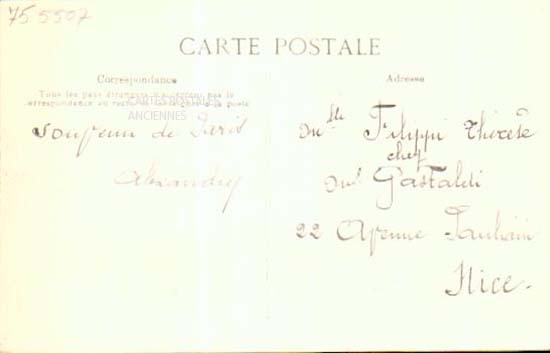 75 5507
CARTE POSTALE
Correspondance
Tous les pays étrangers n'acceptent pas la
correspondance au recto. (Se renseigner à la poste
CARTES POSTALES
ANCIENNES
Souvenir de Paris
Alexandre
Adresse
Mlle Filippi Thérèse
chez
Mr Gastaldi
22 Avenue
Nice.